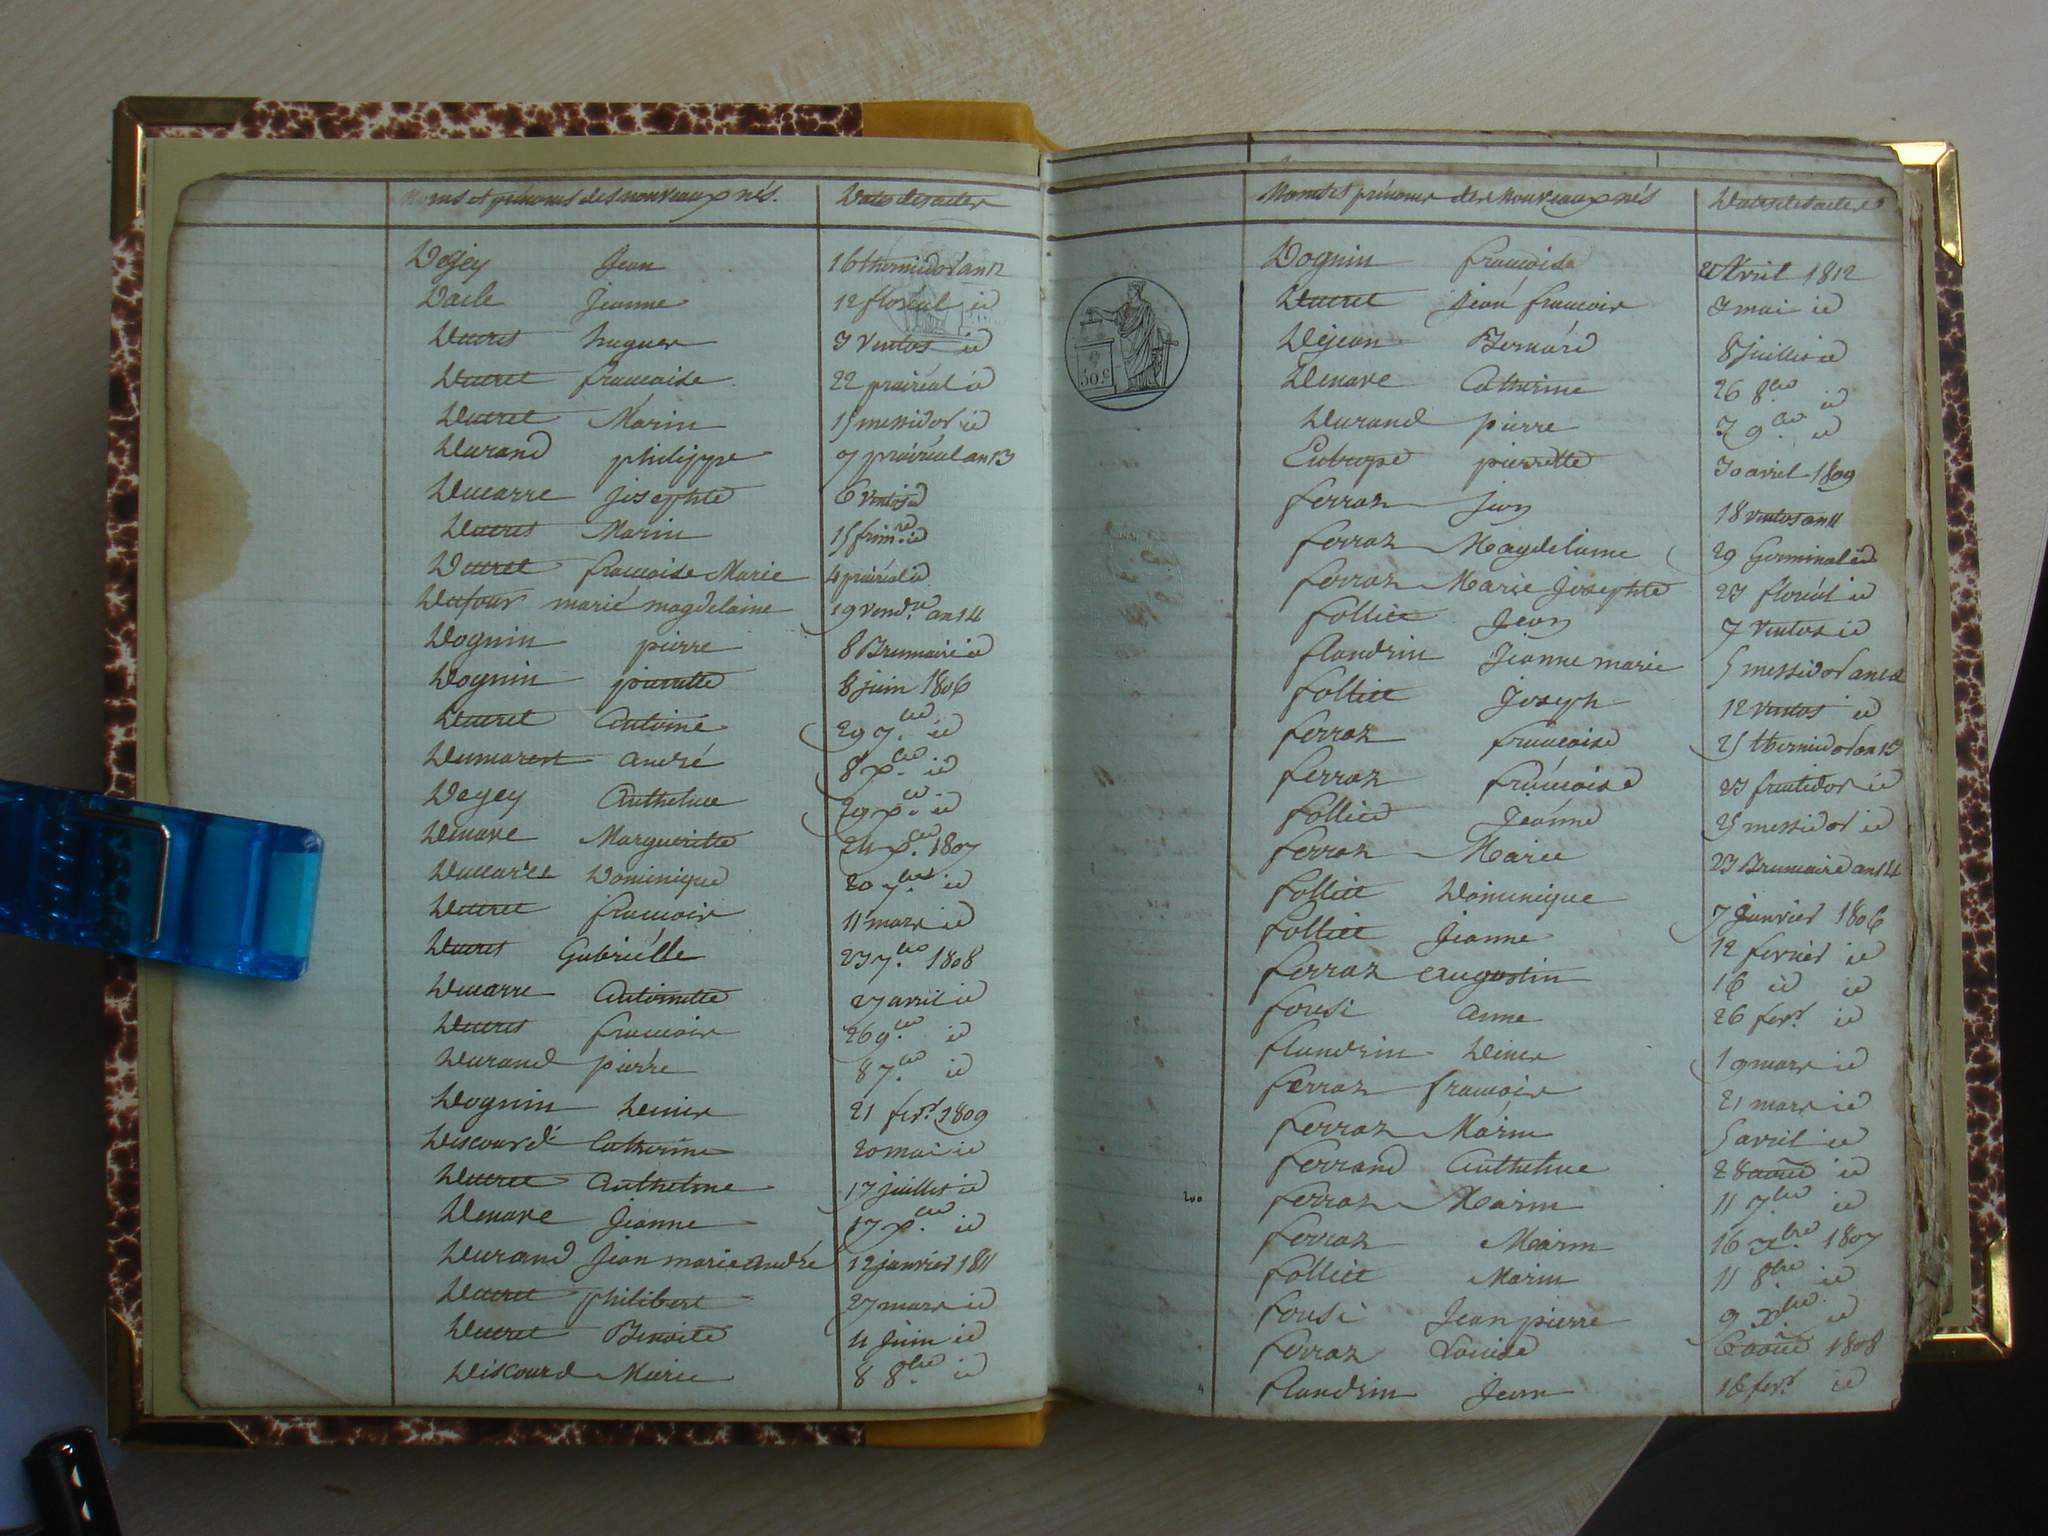 Noms et prénoms des nouveaux nés. Dates des actes
Degey Jean 16 thermidor an 12
Dacle Jeanne 12 floréal id
Ducret hugues 3 Ventos id
Ducret francoise. 22 prairéal id
Ducret Marin 15 messidor id
Durand philippe 9 prairéal an 13
Ducarre josephte 6 Ventos id
Ducret Marin 15 frim.re id
Ducret francoise Marie 4 prairéal id
Dufour marie magdelaine 19 Vend.re an 14
Dognin pierre 8 Brumaire id
Dognin pierrette 8 juin 1806
Ducret Antoine 29 7.bre id
Dumarest André 8 x.bre id
Degey Anthelme 29 x.bre id
Denave Margueritte 24 x.bre 1807
Ducarre Dominique 20 7.bre id
Ducret francois 11 mars id
Ducret Gabriélle 23 7.bre 1808
Ducarre Antoinette 27 avril id
Ducret francois 26 9.bre id
Durand pierre 8 7.bre id
Dognin Denis 21 fevr. 1809
Discourd Catherine 20 mai id
Ducret Anthelme 17 juillet id
Denave Jeanne 17 x.bre id
Durand Jean marie André 12 janvier 1811
Ducret philibert 27 mars id
Ducret Benoite 11 Juin id
Discourd Marie 8 8.bre id
Noms et prénoms des nouveaux nés Dates des actes
Dognin francoise 2 Avril 1812
Ducret Jean francois 3 mai id
Dejean Bernard 8 juillet id
Denave Catherine 26 8.bre id
50 C.
Durand pierre 3 9.bre id
Eutrope pierrette 30 avril 1809
ferraz Jean 18 ventos an 11
ferraz Magdelaine 29 Germinal id
ferraz Marie Josephte 23 floréal id
folliet Jean 7 Ventos id
flandrin Jeanne marie 5 messidor an 12
folliet Joseph 12 Ventos id
ferraz francoise 25 thermidor an 13
ferraz francoise 23 fructidor id
folliet Jeanne 25 messidor id
ferraz Marie 23 Brumaire an 14
folliet Dominique 7 Janvier 1806
folliet Jeanne 12 fevrier id
ferraz Augustin 16 id id
fousi Anne 26 fevr. id
flandrin Denis 19 mars id
ferraz francois 21 mars id
ferraz Marin 5 avril id
ferrand Anthelme 28 aout id
200 ferraz Marin 11 7.bre id
ferraz Marin 16 x.bre 1807
folliet Marin 11 8.bre id
fousi Jean pierre 9 X.bre id
ferraz Louise 6 aout 1808
flandrin Jean 16 fevr. id